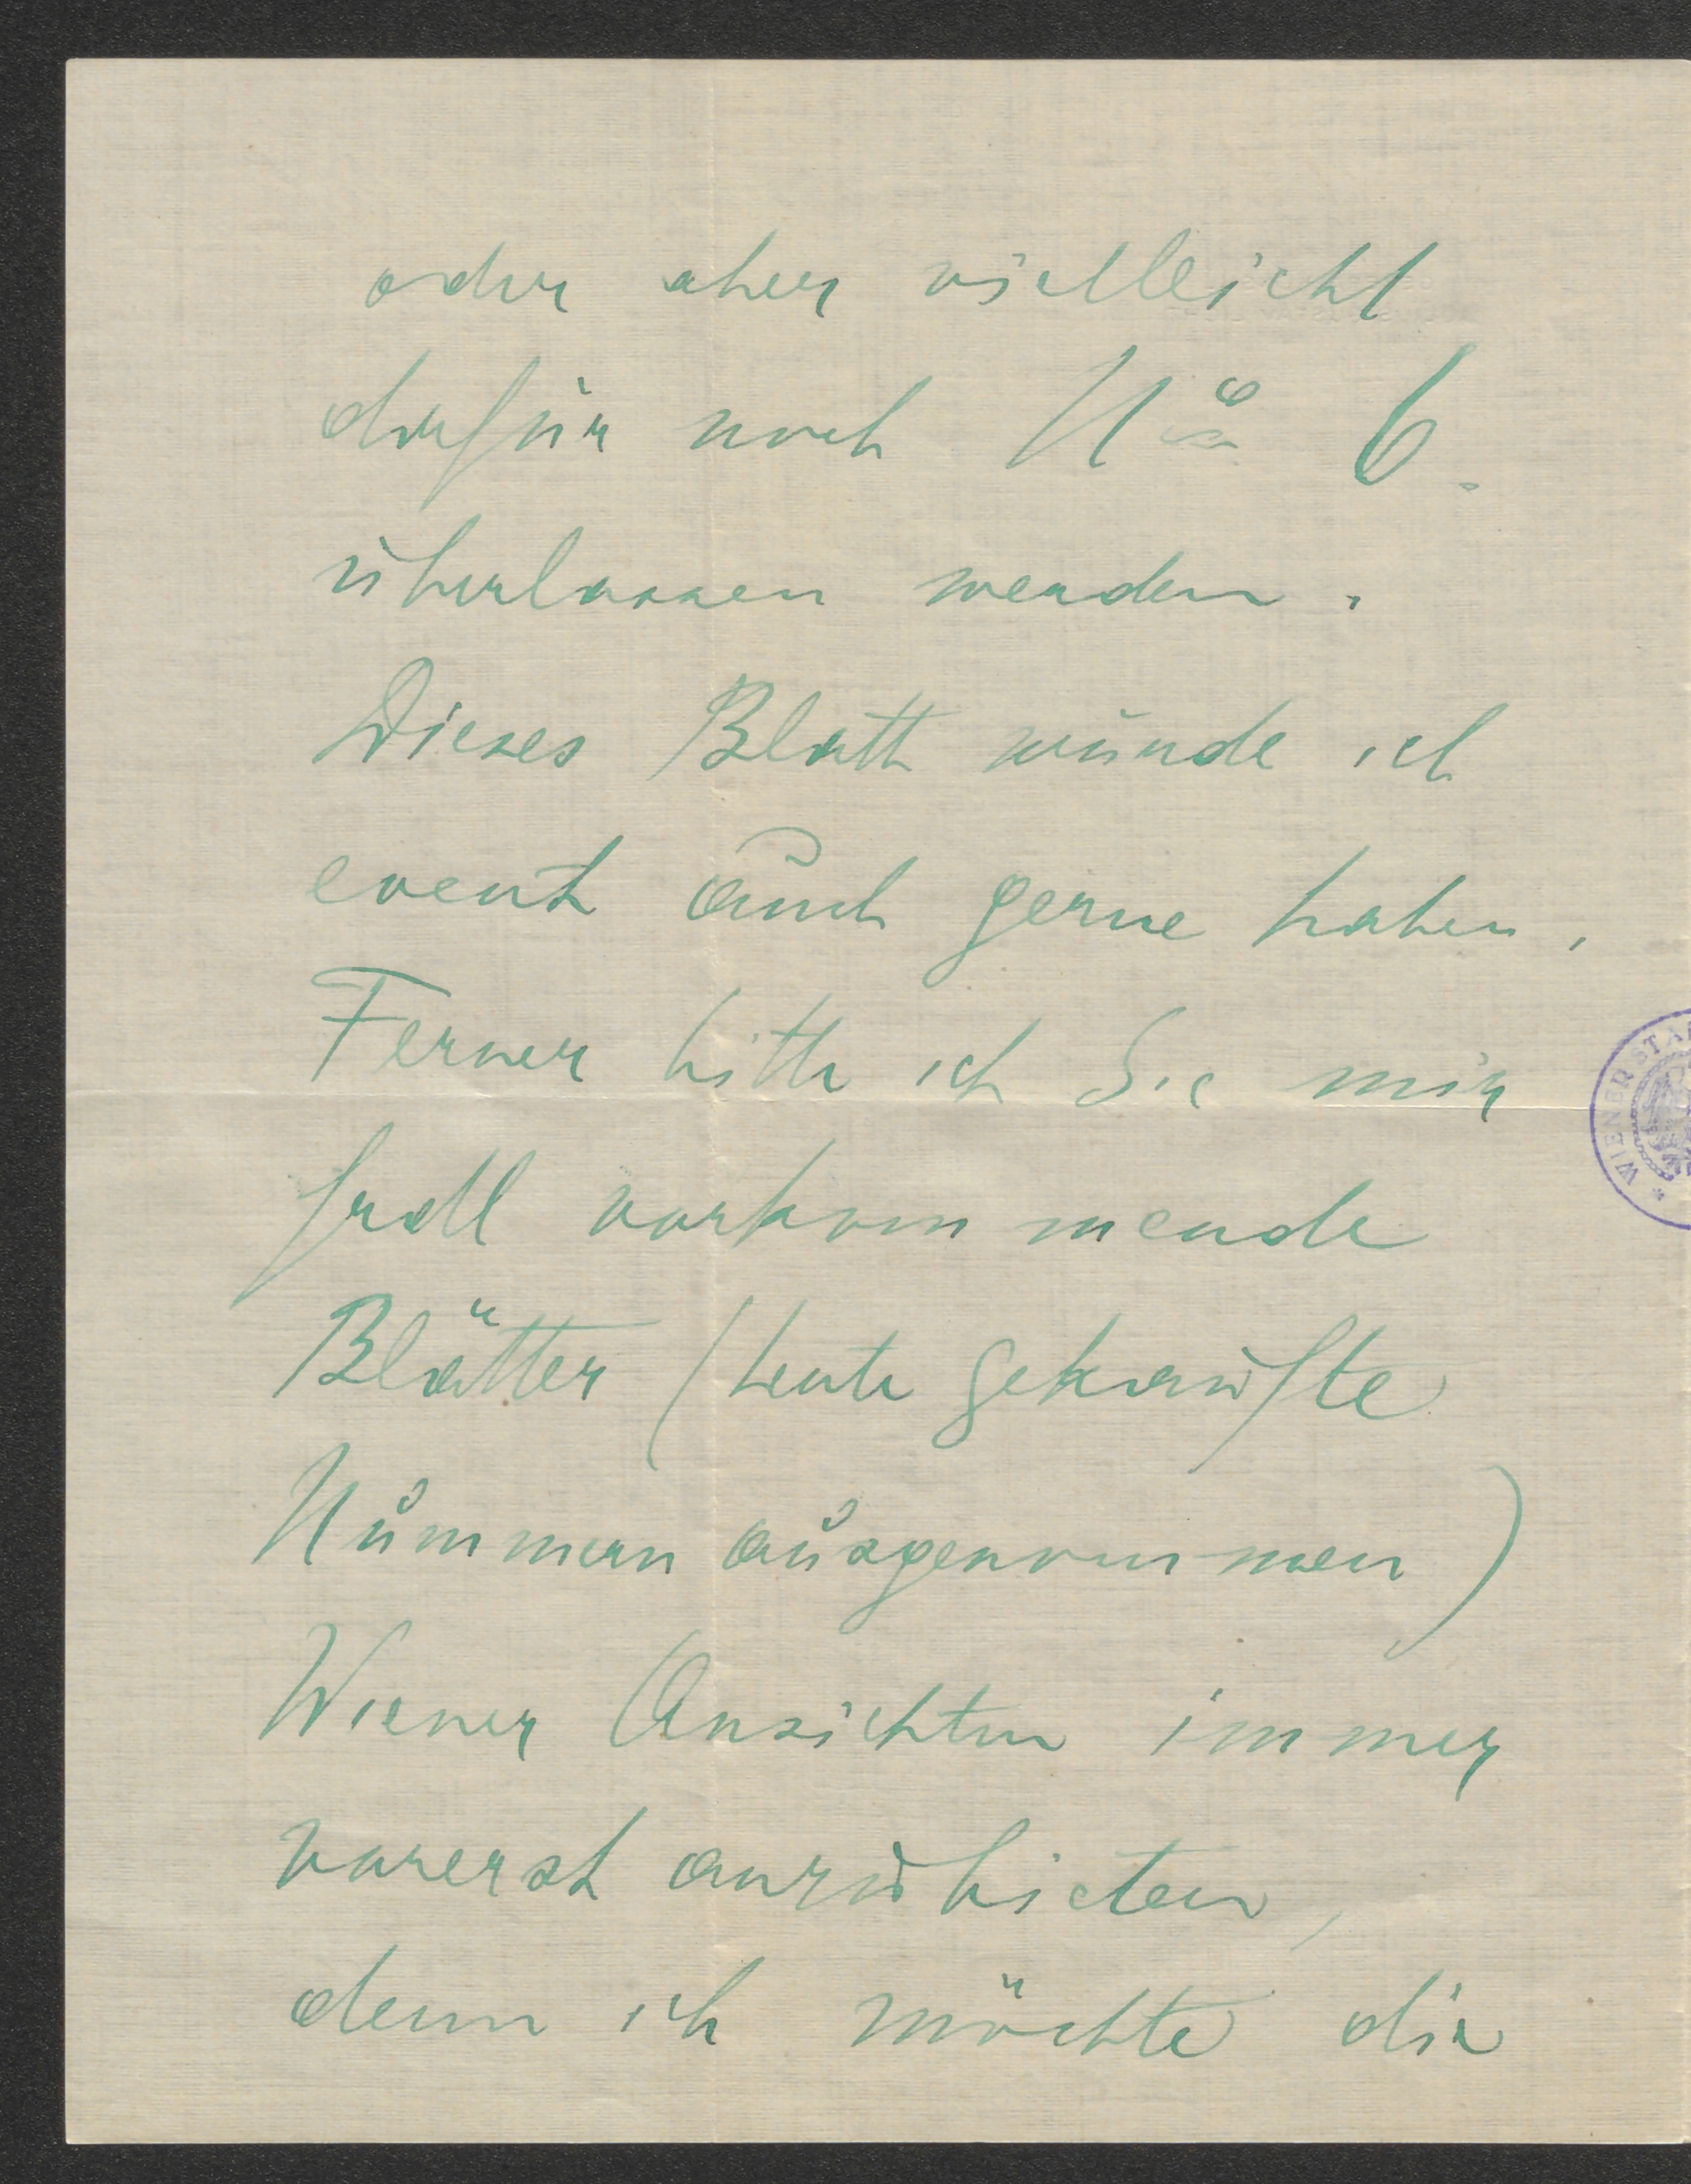 oder aber vielleicht
dafür noch No 6.
überlassen werden.
Dieses Blatt würde ich
event auch gerne haben.
Ferner bitte ich Sie mir
fall vorkommende
Blätter (heute gekaufte
Nummern ausgenommen)
Wiener Ansichten immer
vorerst anzubieten,
denn ich möchte die
WIENER STA